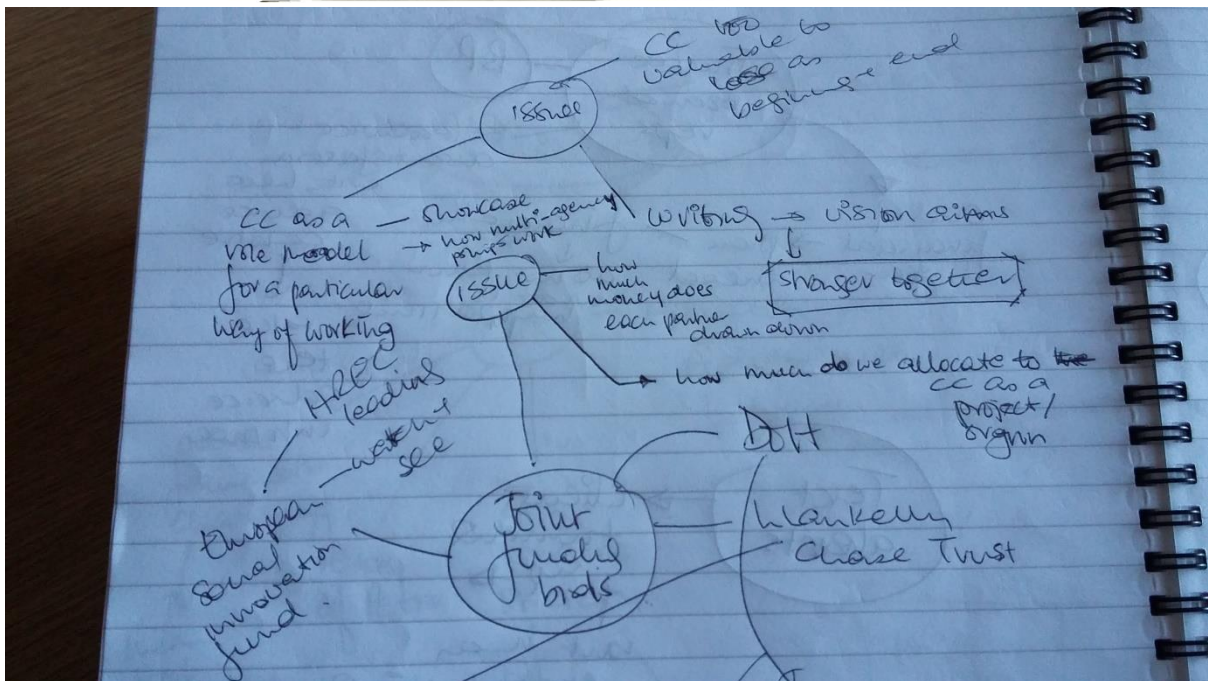 CC too
valuable to
lose as
beginning + end
issue
CC as a
role model
for a particular
way of working
showcase
how multi-agency
work
writing → vision
stronger together
issue
how
much
money does
each partner
drawn down
how much do we allocate to
CC as a
project/
orgnn
HREC
leading
wait +
see
European
social
innovation
fund.
Joint
funding
bids
DOH
Lankelly
Chase Trust